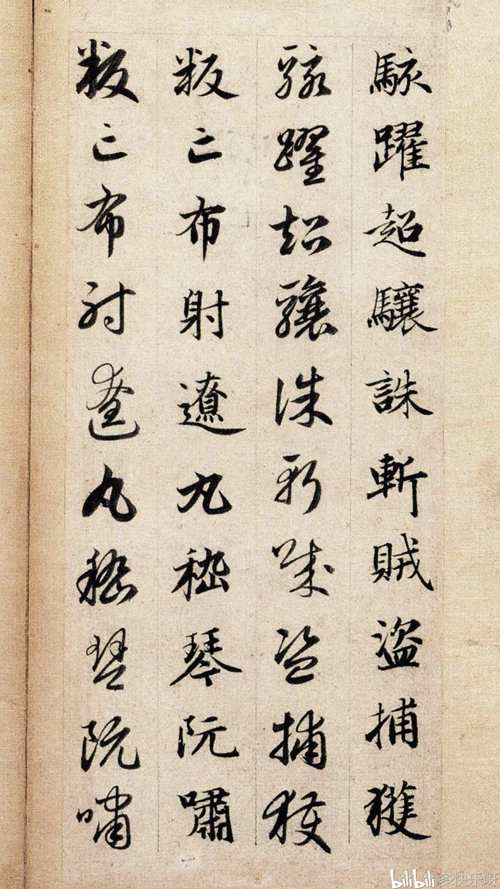 駭躍超驤誅斬賊盜捕獲
駭躍超驤誅斬賊盜捕獲
叛亡布射遼丸嵇琴阮嘯
叛亡布射遼丸嵇琴阮嘯
bilibili